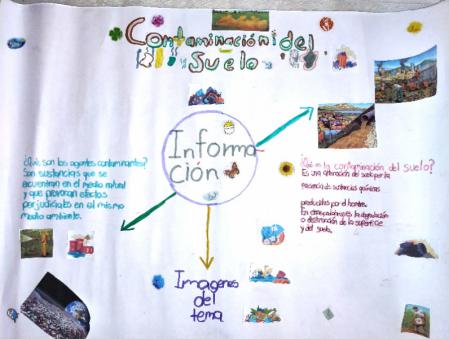 Contaminación del
Suelo
Informa-
ción
¿Qué son los agentes contaminantes?
Son sustancias que se
encuentran en el medio natural
y que provocan efectos
perjudiciales en el mismo
medio ambiente.
¿Qué es la contaminación del suelo?
Es una alteración del suelo por la
presencia de sustancias químicas
producidas por el hombre.
es la degradación
o destrucción de la superficie
y del suelo.
Imagenes
del
tema